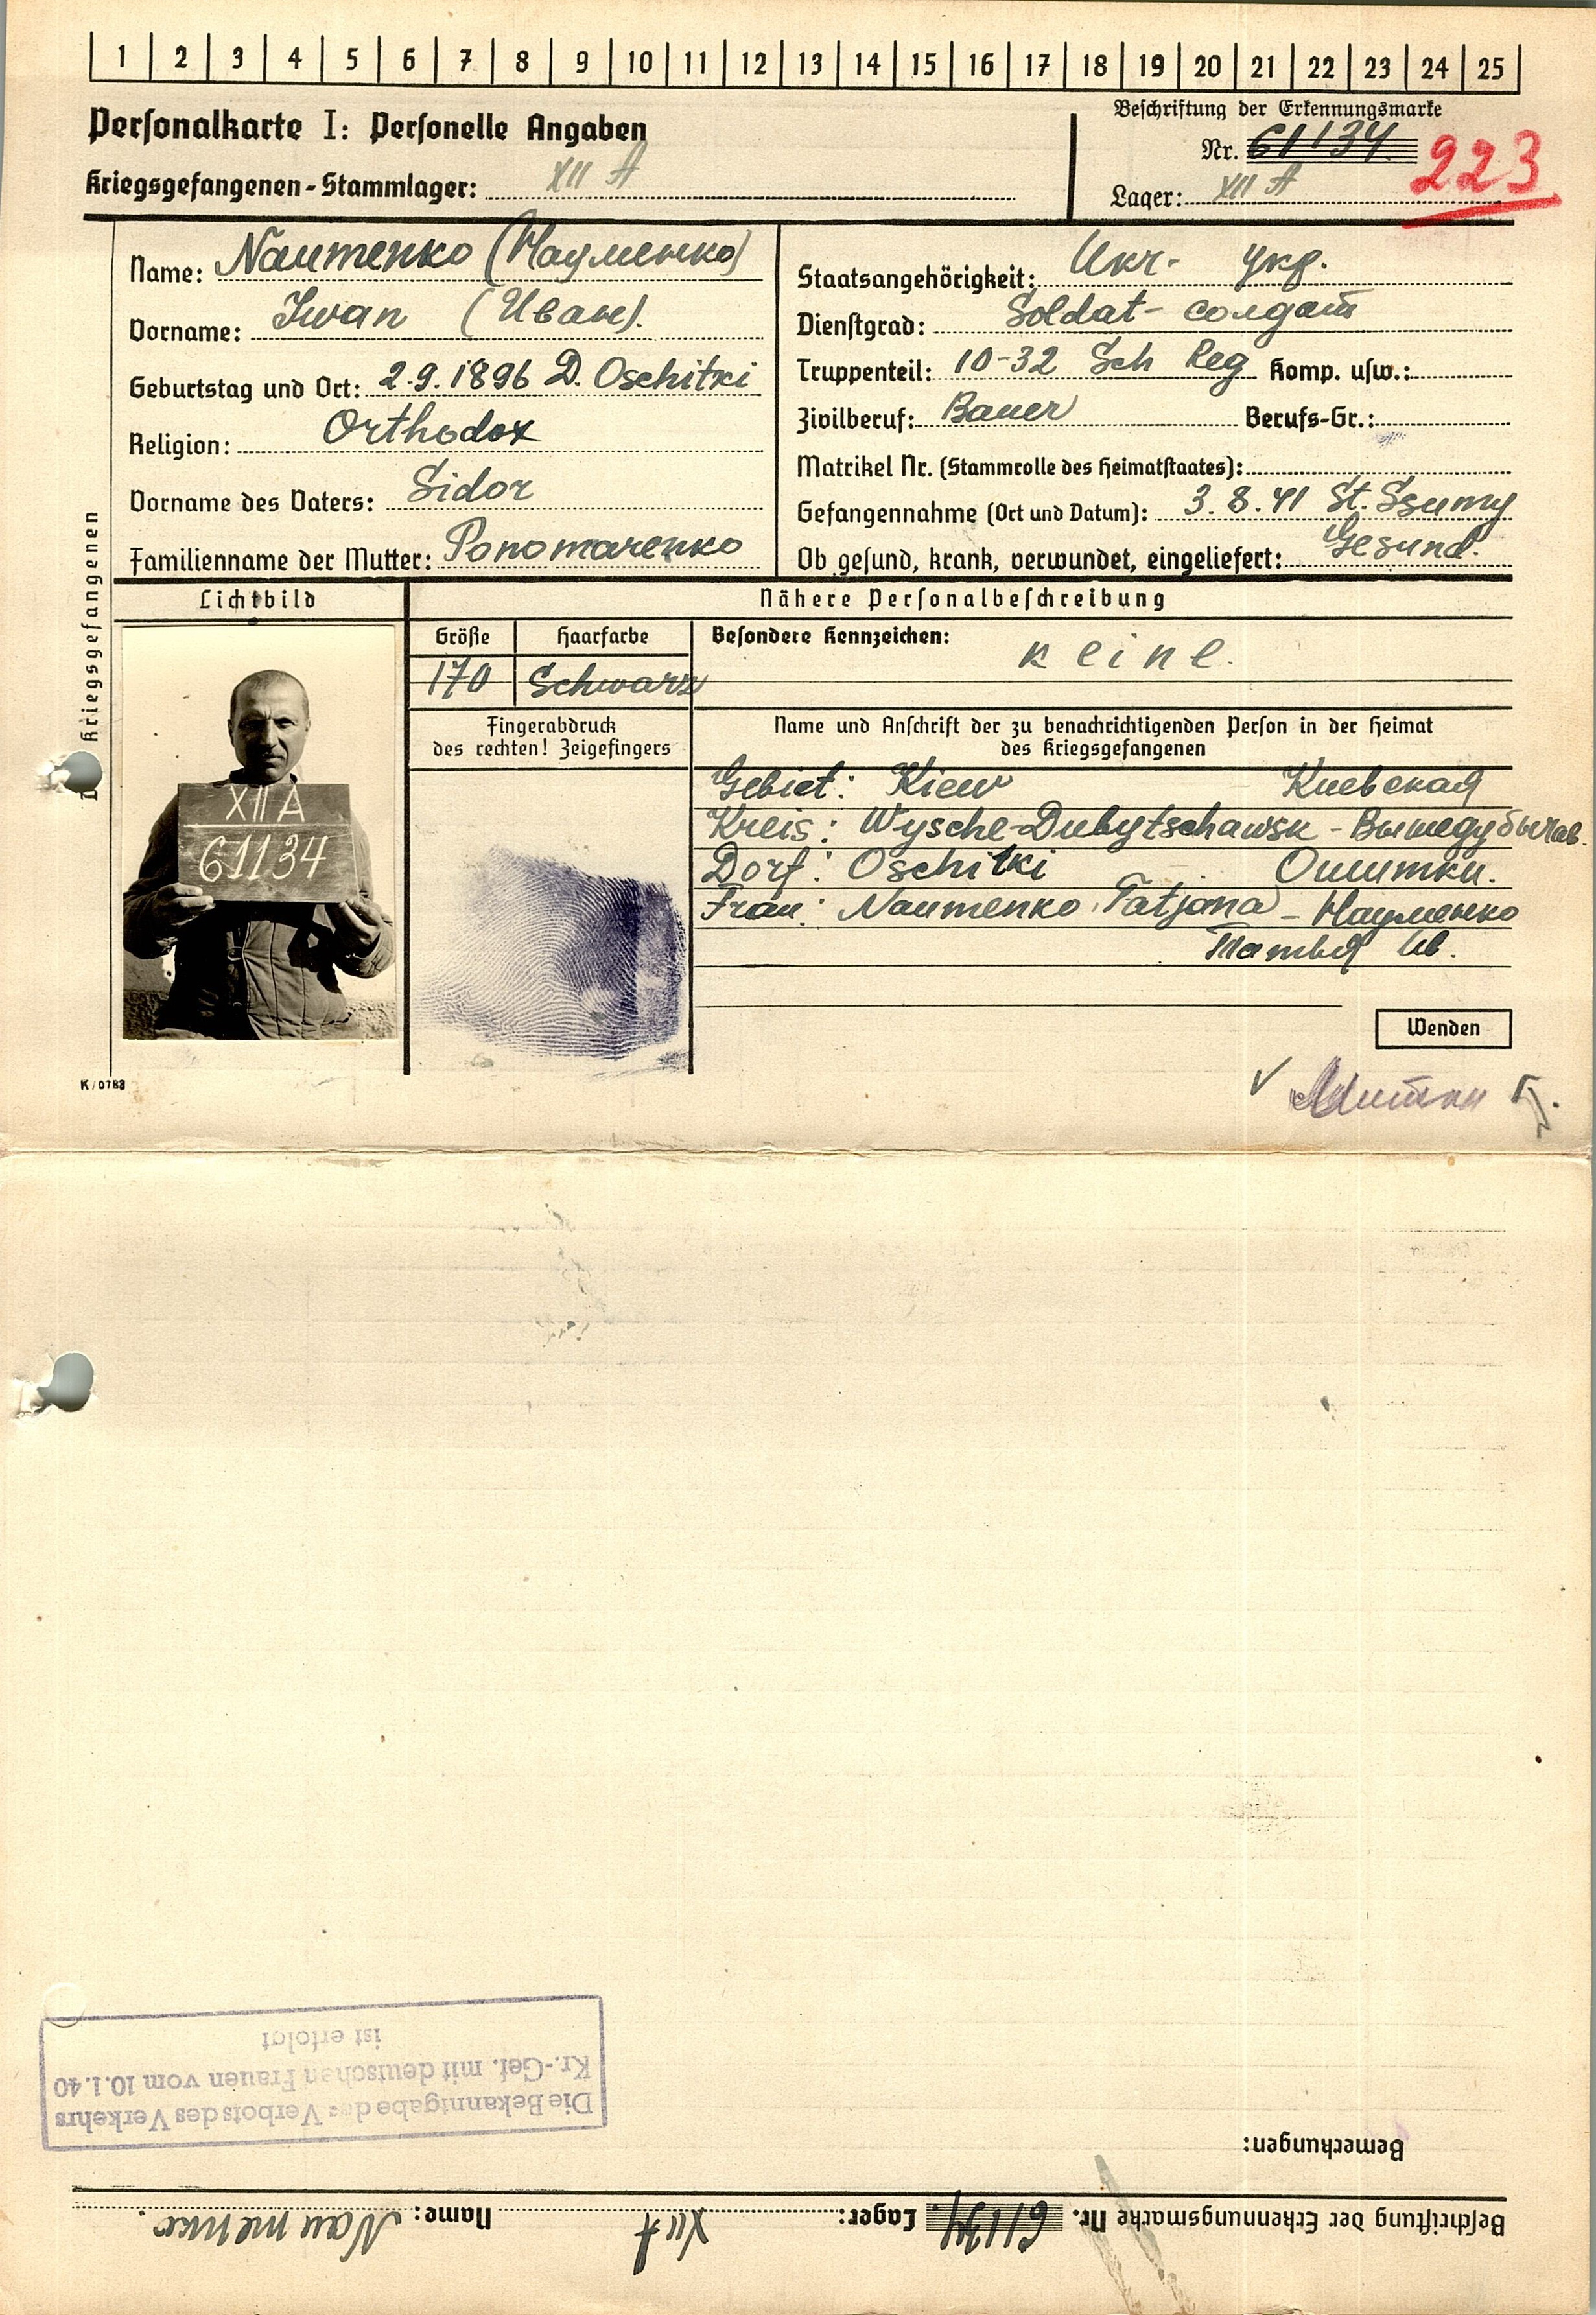 1 2 3 4 5 6 7 8 9 10 11 12 13 14 15 16 17 18 19 20 21 22 23 24 25
Personalkarte I: Personelle Angaben
Kriegsgefangenen-Stammlager: XII A
Beschriftung der Erkennungsmarke
Nr. 61134.
223
Lager: XII A
Name: Naumenko (Науменко)
Vorname: Iwan (Иван).
Geburtstag und Ort: 2.9.1896 D. Oschitki
Religion: Orthodox
Vorname des Vaters: Sidor
Familienname der Mutter: Ponomarenko
Staatsangehörigkeit: Ukr- укр.
Dienstgrad: Soldat- солдат
Truppenteil: 10-32 Sch Reg Komp. usw.:
Zivilberuf: Bauer Berufs-Gr.:
Matrikel Nr. (Stammrolle des Heimatstaates):
Gefangennahme (Ort und Datum): 3.8.41 St. Ssumy
Ob gesund, krank, verwundet, eingeliefert: Gesund.
Kriegsgefangenen
Lichtbild
Nähere Personalbeschreibung
Größe Haarfarbe
170 Schwarz
Besondere Kennzeichen: keine.
Fingerabdruck
des rechten! Zeigefingers
Name und Anschrift der zu benachrichtigenden Person in der Heimat
des Kriegsgefangenen
Gebiet: Kiew Киевская
Kreis: Wysche-Dubytschawsk - Вышедубычав.
Dorf: Oschitki Ошитки.
Frau: Naumenko Tatjana - Науменко
XII A
61134
Wenden
K/0783
Die Bekanntgabe des Verbots des Verkehrs
Kr.-Gef. mit deutschen Frauen vom 10.1.40
ist erfolgt
Bemerkungen:
Beschriftung der Erkennungsmarke Nr. 61134. Lager: XII A Name: Naumenko.